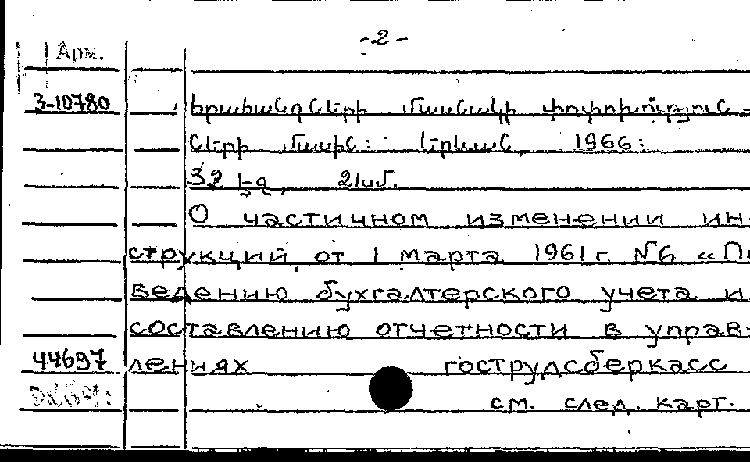 -2-
Арм.
3-10780 հրահանգների մասնակի փոփոխություն-
ների մասին: Երևան, 1966:
32 էջ, 21սմ.
О частичном изменении ин-
струкций, от 1 марта 1961г. №6 «По
ведению бухгалтерского учета и
составлению отчетности в управ-
44697 лениях гострудсберкасс
см. след. карт.